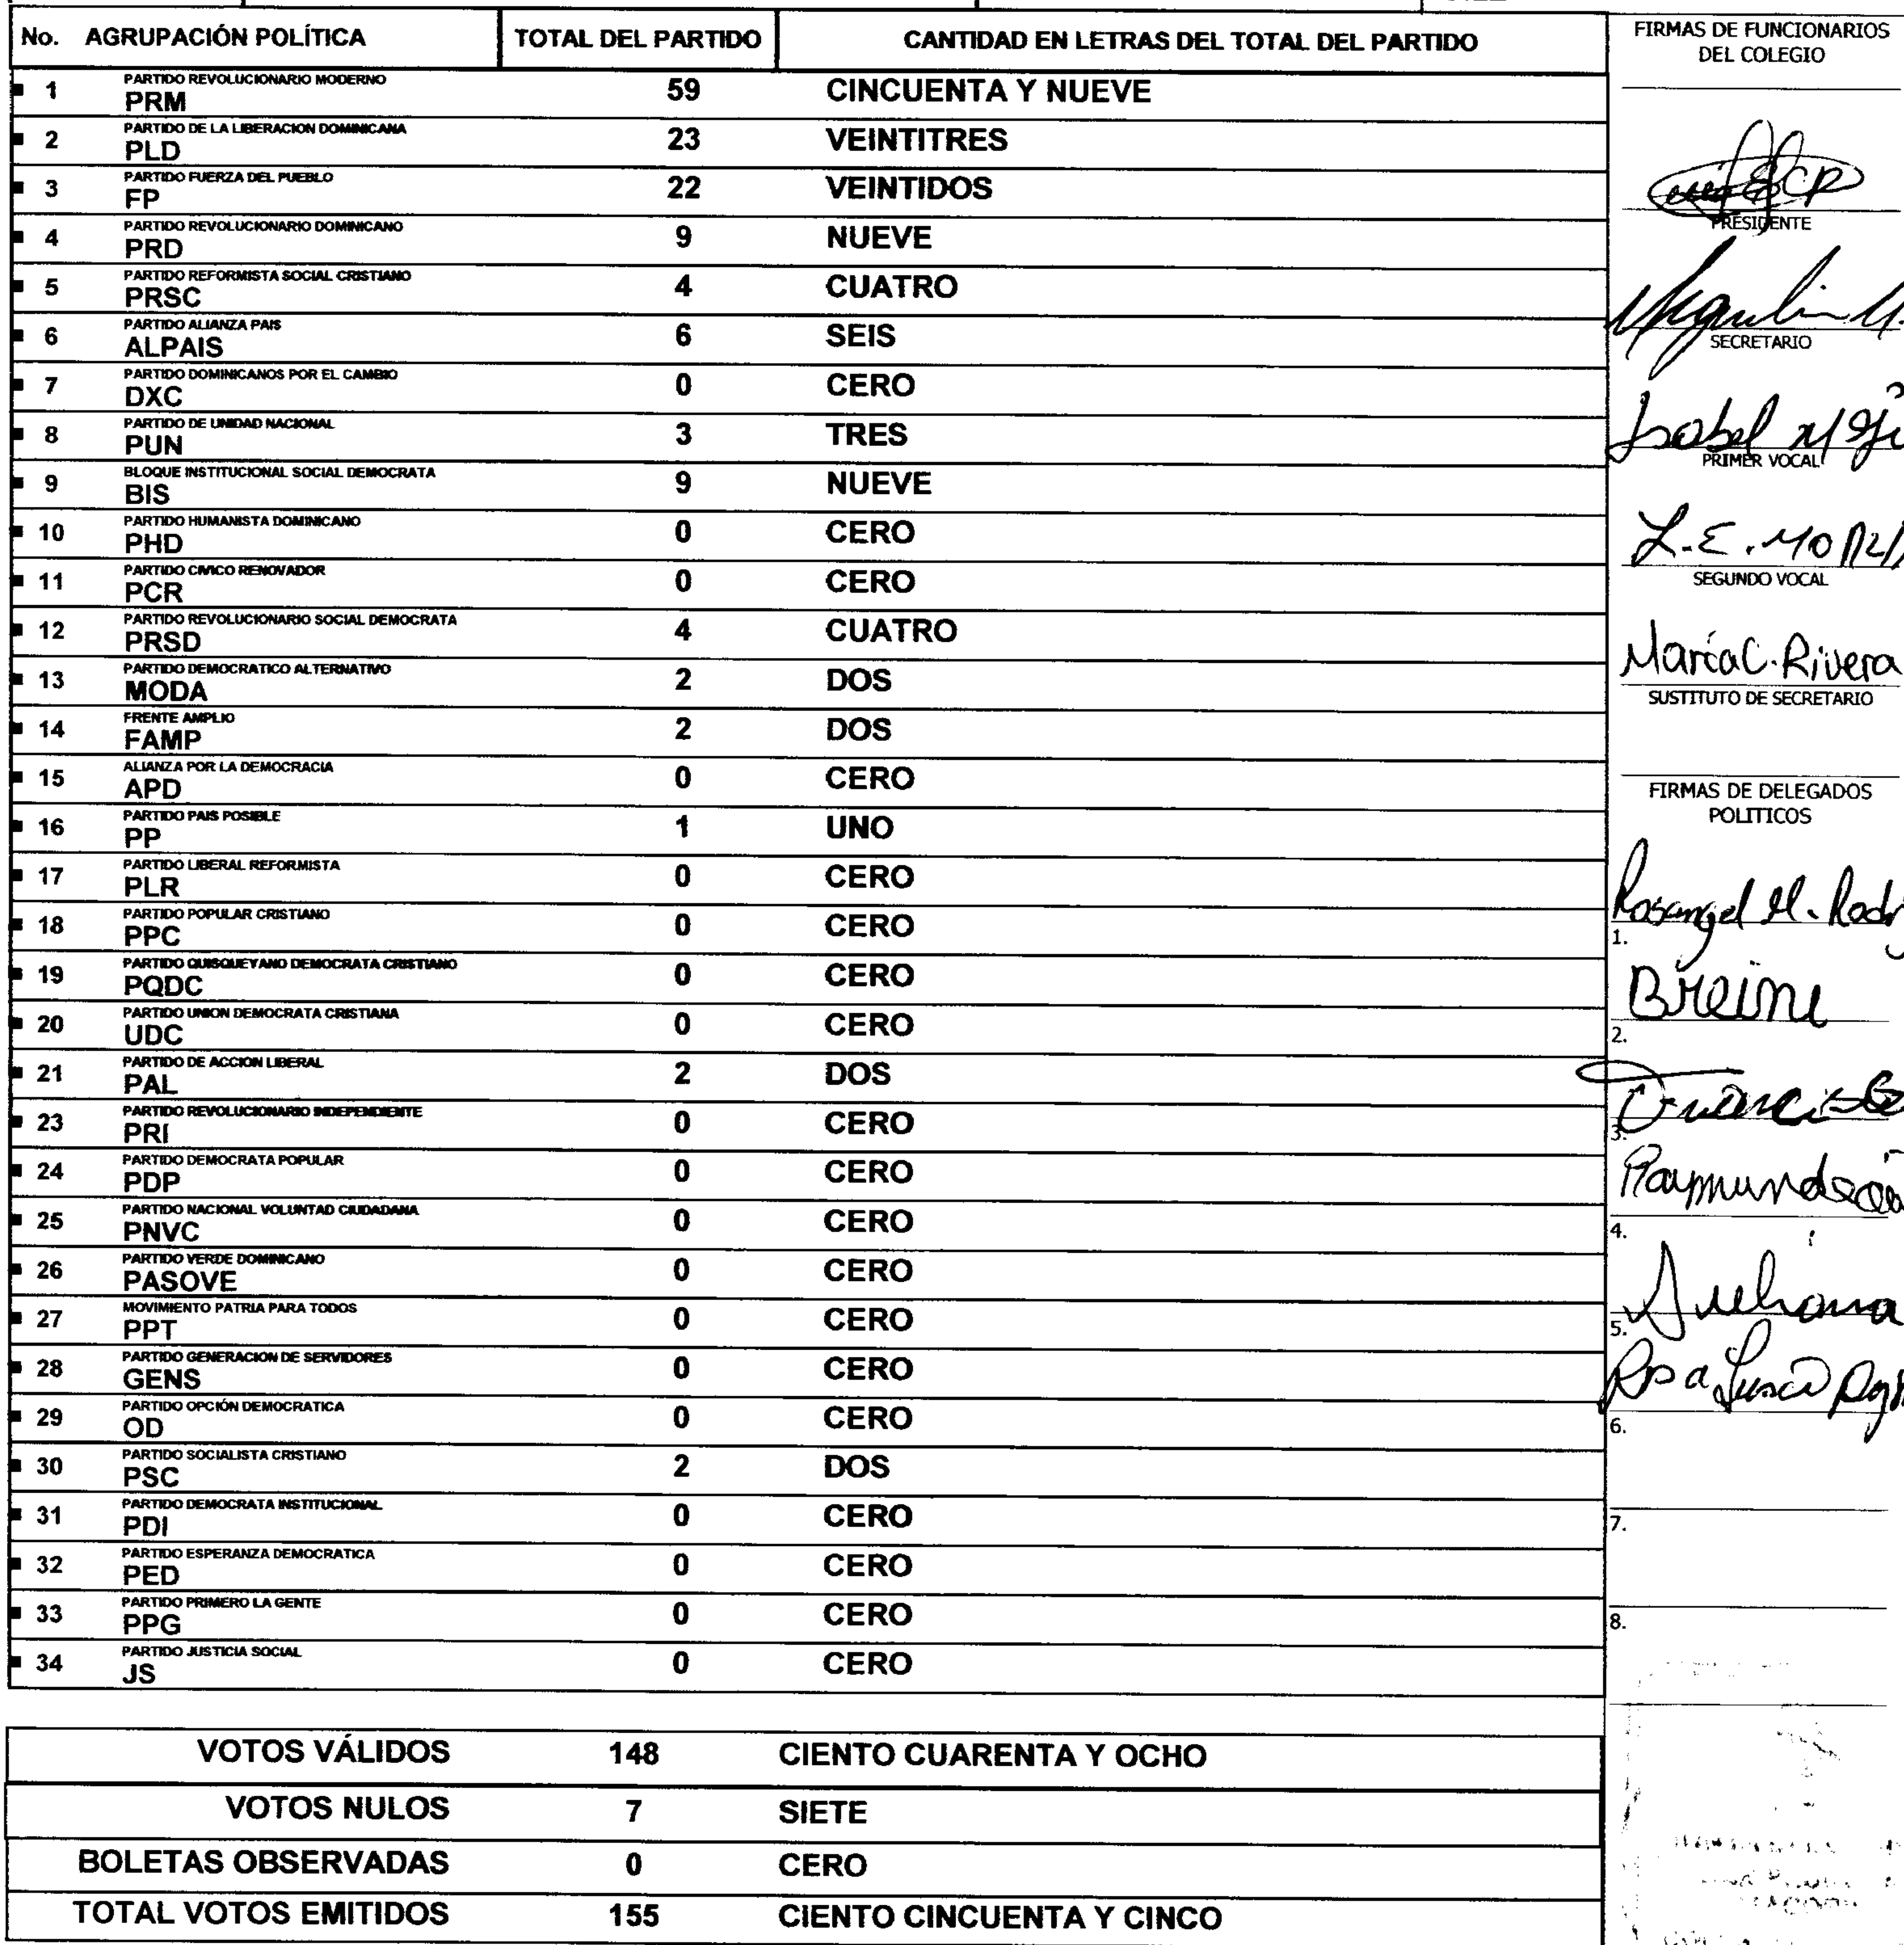 No. AGRUPACIÓN POLÍTICA TOTAL DEL PARTIDO CANTIDAD EN LETRAS DEL TOTAL DEL PARTIDO
1 PARTIDO REVOLUCIONARIO MODERNO
PRM 59 CINCUENTA Y NUEVE
2 PARTIDO DE LA LIBERACION DOMINICANA
PLD 23 VEINTITRES
3 PARTIDO FUERZA DEL PUEBLO
FP 22 VEINTIDOS
4 PARTIDO REVOLUCIONARIO DOMINICANO
PRD 9 NUEVE
5 PARTIDO REFORMISTA SOCIAL CRISTIANO
PRSC 4 CUATRO
6 PARTIDO ALIANZA PAIS
ALPAIS 6 SEIS
7 PARTIDO DOMINICANOS POR EL CAMBIO
DXC 0 CERO
8 PARTIDO DE UNIDAD NACIONAL
PUN 3 TRES
9 BLOQUE INSTITUCIONAL SOCIAL DEMOCRATA
BIS 9 NUEVE
10 PARTIDO HUMANISTA DOMINICANO
PHD 0 CERO
11 PARTIDO CIVICO RENOVADOR
PCR 0 CERO
12 PARTIDO REVOLUCIONARIO SOCIAL DEMOCRATA
PRSD 4 CUATRO
13 PARTIDO DEMOCRATICO ALTERNATIVO
MODA 2 DOS
14 FRENTE AMPLIO
FAMP 2 DOS
15 ALIANZA POR LA DEMOCRACIA
APD 0 CERO
16 PARTIDO PAIS POSIBLE
PP 1 UNO
17 PARTIDO LIBERAL REFORMISTA
PLR 0 CERO
18 PARTIDO POPULAR CRISTIANO
PPC 0 CERO
19 PARTIDO QUISQUEYANO DEMOCRATA CRISTIANO
PQDC 0 CERO
20 PARTIDO UNION DEMOCRATA CRISTIANA
UDC 0 CERO
21 PARTIDO DE ACCION LIBERAL
PAL 2 DOS
23 PARTIDO REVOLUCIONARIO INDEPENDIENTE
PRI 0 CERO
24 PARTIDO DEMOCRATA POPULAR
PDP 0 CERO
25 PARTIDO NACIONAL VOLUNTAD CIUDADANA
PNVC 0 CERO
26 PARTIDO VERDE DOMINICANO
PASOVE 0 CERO
27 MOVIMIENTO PATRIA PARA TODOS
PPT 0 CERO
28 PARTIDO GENERACION DE SERVIDORES
GENS 0 CERO
29 PARTIDO OPCIÓN DEMOCRATICA
OD 0 CERO
30 PARTIDO SOCIALISTA CRISTIANO
PSC 2 DOS
31 PARTIDO DEMOCRATA INSTITUCIONAL
PDI 0 CERO
32 PARTIDO ESPERANZA DEMOCRATICA
PED 0 CERO
33 PARTIDO PRIMERO LA GENTE
PPG 0 CERO
34 PARTIDO JUSTICIA SOCIAL
JS 0 CERO
VOTOS VÁLIDOS 148 CIENTO CUARENTA Y OCHO
VOTOS NULOS 7 SIETE
BOLETAS OBSERVADAS 0 CERO
TOTAL VOTOS EMITIDOS 155 CIENTO CINCUENTA Y CINCO
FIRMAS DE FUNCIONARIOS
DEL COLEGIO
PRESIDENTE
SECRETARIO
Isabel
PRIMER VOCAL
L.E.
SEGUNDO VOCAL
María C. Rivera
SUSTITUTO DE SECRETARIO
FIRMAS DE DELEGADOS
POLITICOS
1.
2.
3.
4.
5.
Rosa
6.
7.
8.